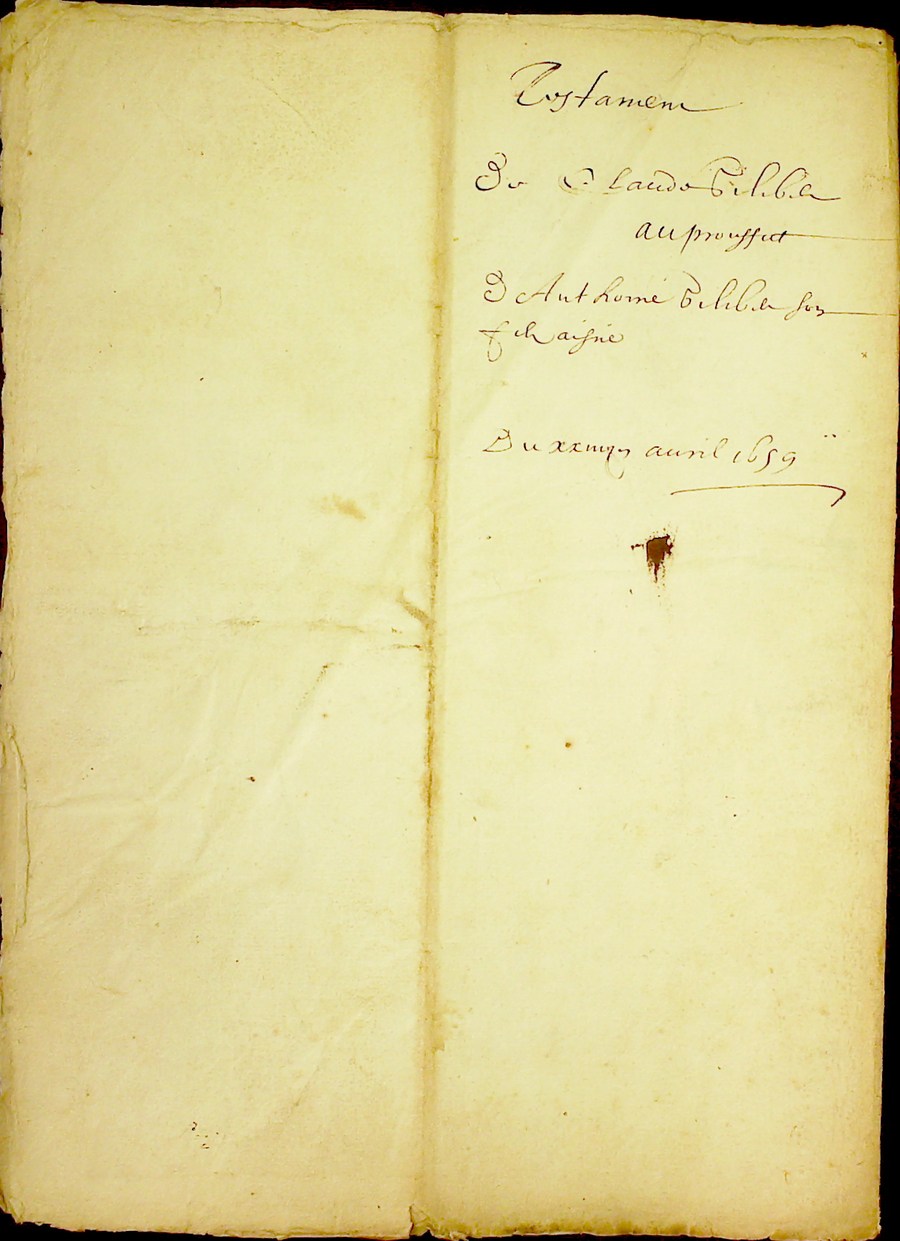 Testament
De Claude
au prouffict
D Anthoine son
filz aisné
Du avril 1659